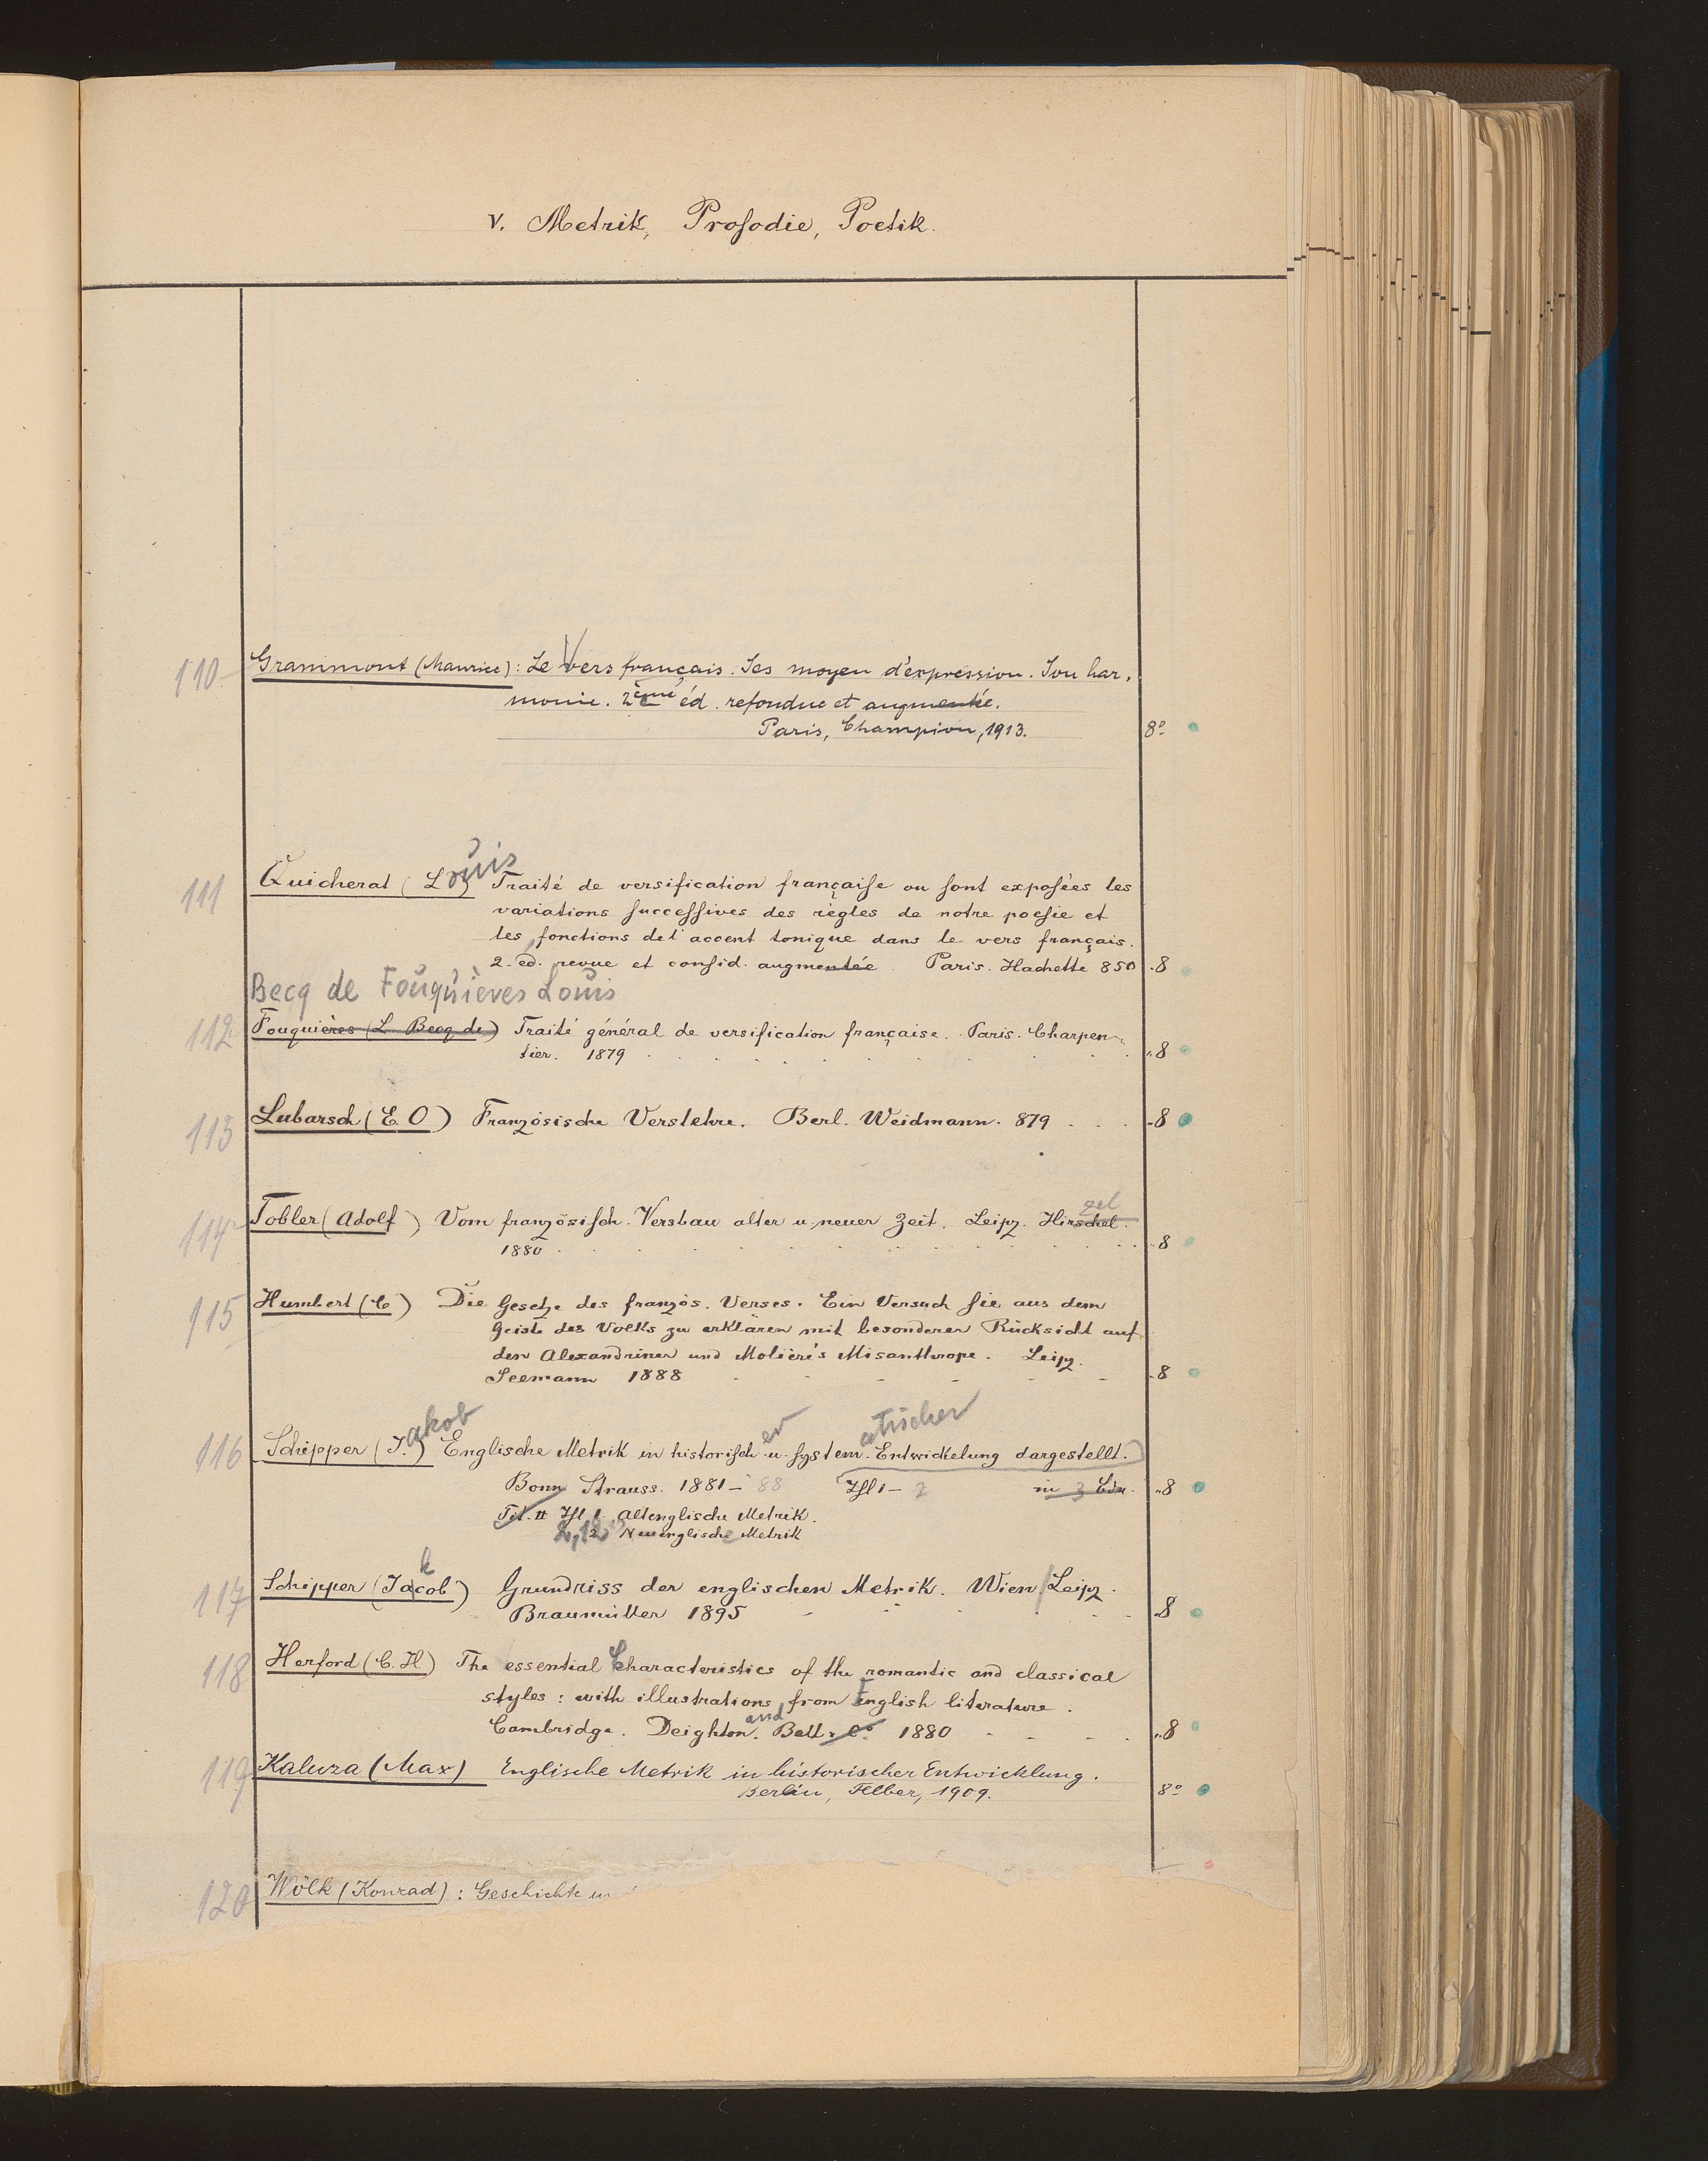 V. Metrik, Prosodie, Poetik.
110 Grammont (Maurice): Le Vers français. Ses moyen d'expression. Son har-
monie. 2ème éd. refondue et augmentée.
Paris, Champion, 1913. 8º
111 Quicherat (Louis) Traité de versification française ou sont exposées les
variations successives des règles de notre poesie et
les fonctions de l'accent tonique dans le vers français.
2. ed. revue et consid. augmentée. Paris. Hachette 850 .8
Becq de Fouquières Louis
112 Fouquières (L Becq de) Traité général de versification française. Paris. Charpen-
tier. 1879 „8
113 Lubarsch (E. O) Französische Verslehre. Berl. Weidmann. 879 „8
zel
114 Tobler (Adolf) Vom französisch. Versbau alter u. neuer Zeit. Leipz. Hirschel.
1880 „8
115 Humbert (C) Die Gesetze des französ. Verses. Ein Versuch sie aus dem
Geiste des Volks zu erklären mit besonderer Rücksicht auf
den Alexandriner und Molière's Misanthrope. Leipz.
Seemann 1888 „8
akob er atischer
116 Schipper (J.) Englische Metrik in historisch. u. system. Entwickelung dargestellt.
Bonn Strauss. 1881-88 Thl 1-2 in 3 Bdn. „8
Tit. # Thl 1. Altenglische Metrik.
2,1.2 2 Neuenglische Metrik
k
117 Schipper (Jacob) Grundriss der englischen Metrik. Wien/Leipz.
Braumüller 1895 „8
118 Herford (C. H) The essential Characteristics of the romantic and classical
styles: with illustrations from English literature.
and
Cambridge. Deighton. Bell. Cº 1880 „8
119 Kaluza (Max) Englische Metrik in historischer Entwicklung.
Berlin, Felber, 1909. 8º
120 Wölk (Konrad): Geschichte u